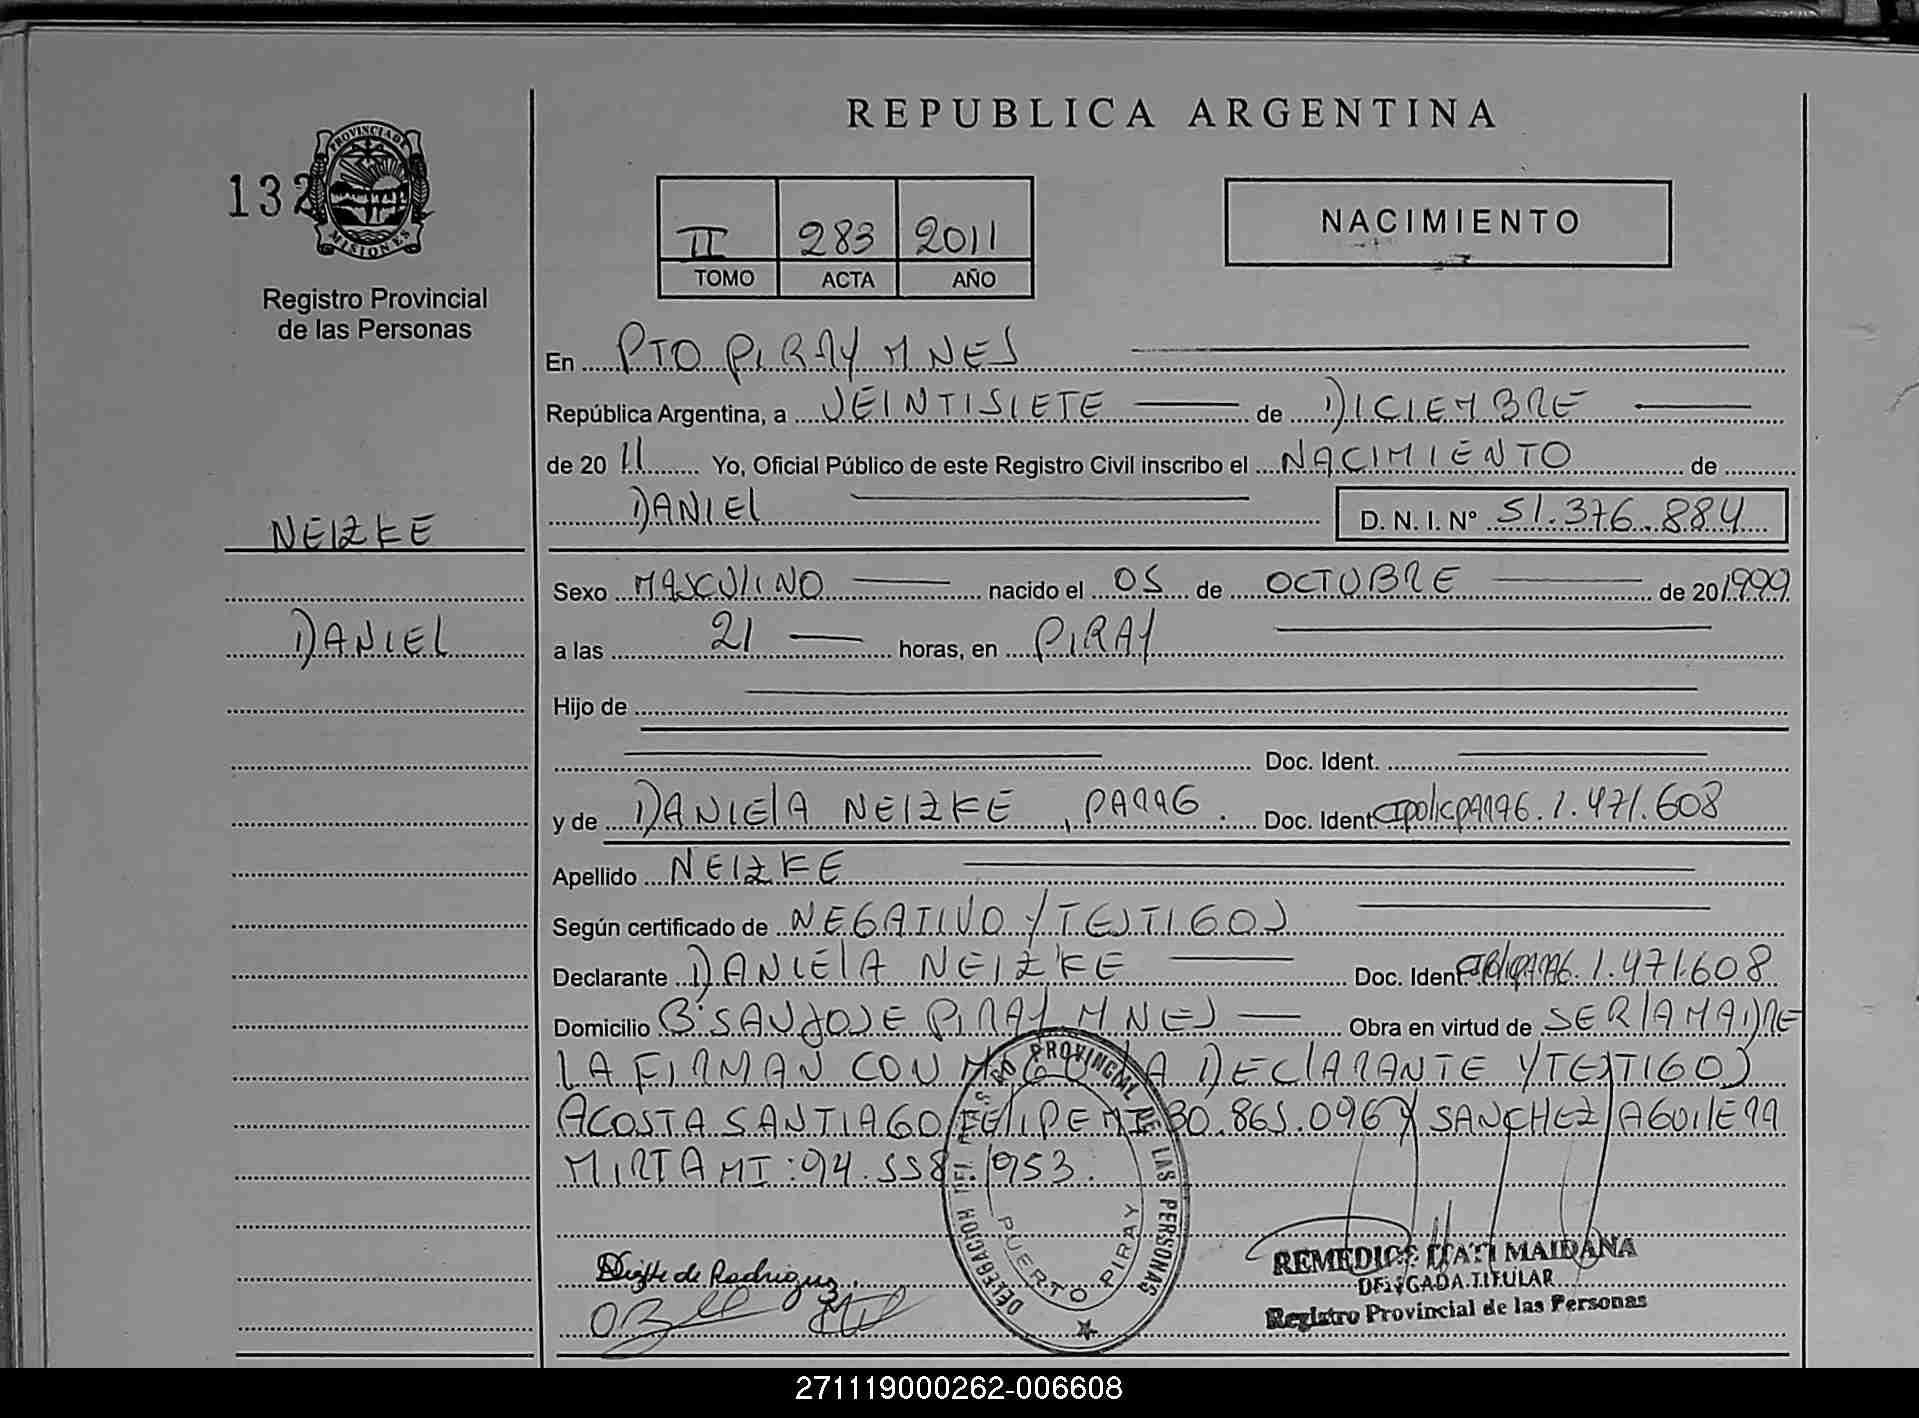 REPUBLICA ARGENTINA
132
PROVINCIA DE
MISIONES
Registro Provincial
de las Personas
II 283 2011
TOMO ACTA AÑO
NACIMIENTO
En PTO PIRAY MNES
República Argentina, a VEINTISIETE de DICIEMBRE
de 2011 Yo, Oficial Público de este Registro Civil inscribo el NACIMIENTO de
DANIEL D. N. I. N° 51.376.884
NEIZKE
DANIEL
Sexo MASCULINO nacido el 05 de OCTUBRE de 20 1999
a las 21 horas, en PIRAY
Hijo de
Doc. Ident.
y de DANIELA NEIZKE, PARAG. Doc. Ident CIPOLICPARAG. 1.471.608
Apellido NEIZKE
Según certificado de NEGATIVO Y TESTIGOS
Declarante DANIELA NEIZKE Doc. Ident 1.471.608
Domicilio B: SAN JOSE PIRAY MNES Obra en virtud de SER LA MADRE
LA FIRMAN CON LA DECLARANTE Y TESTIGOS
ACOSTA SANTIAGO FELIPE MI: 30.865.096 Y SANCHEZ AGUILERA
MIRTA MI: 94.558.953.
DELEGACION DEL REGISTRO PROVINCIAL DE LAS PERSONAS
PUERTO PIRAY
de Rodriguez
REMEDIOS ITATI MAIDANA
DELEGADA TITULAR
Registro Provincial de las Personas
271119000262-006608